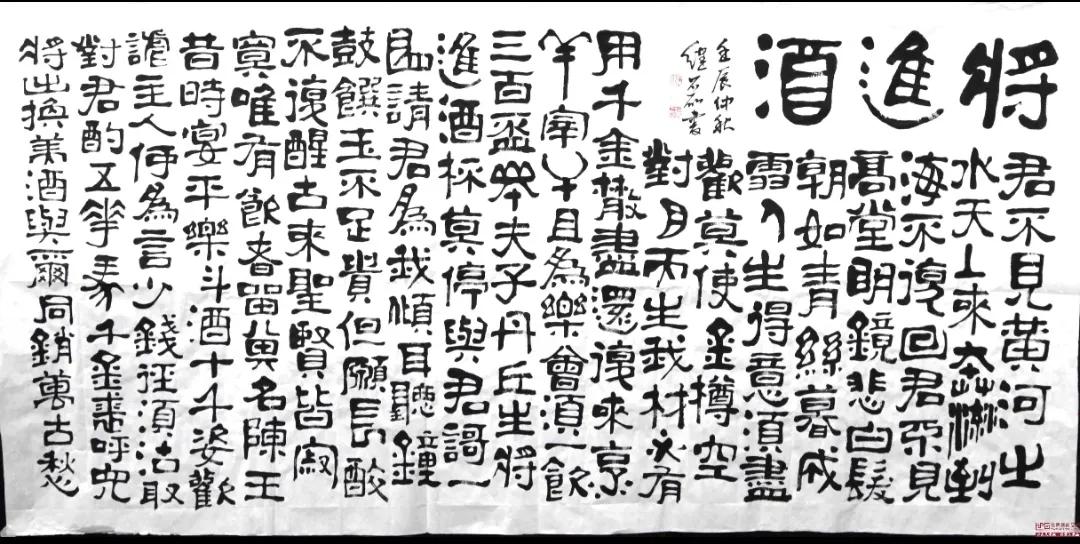 將進酒
君不見黃河之
水天上來奔流到
海不復回君不見
高堂明鏡悲白髮
朝如青絲暮成
雪人生得意須盡
歡莫使金樽空
對月天生我材必有
用千金散盡還復來烹
羊宰牛且為樂會須一飲
三百盃岑夫子丹丘生將
進酒杯莫停與君謌一
曲請君為我傾耳聽鐘
鼓饌玉不足貴但願長醉
不復醒古來聖賢皆寂
寞唯有飲者留其名陳王
昔時宴平樂斗酒十千姿歡
謔主人何為言少錢徑須沽取
對君酌五華馬千金裘呼兒
將出換美酒與爾同銷萬古愁
壬辰仲秋
書